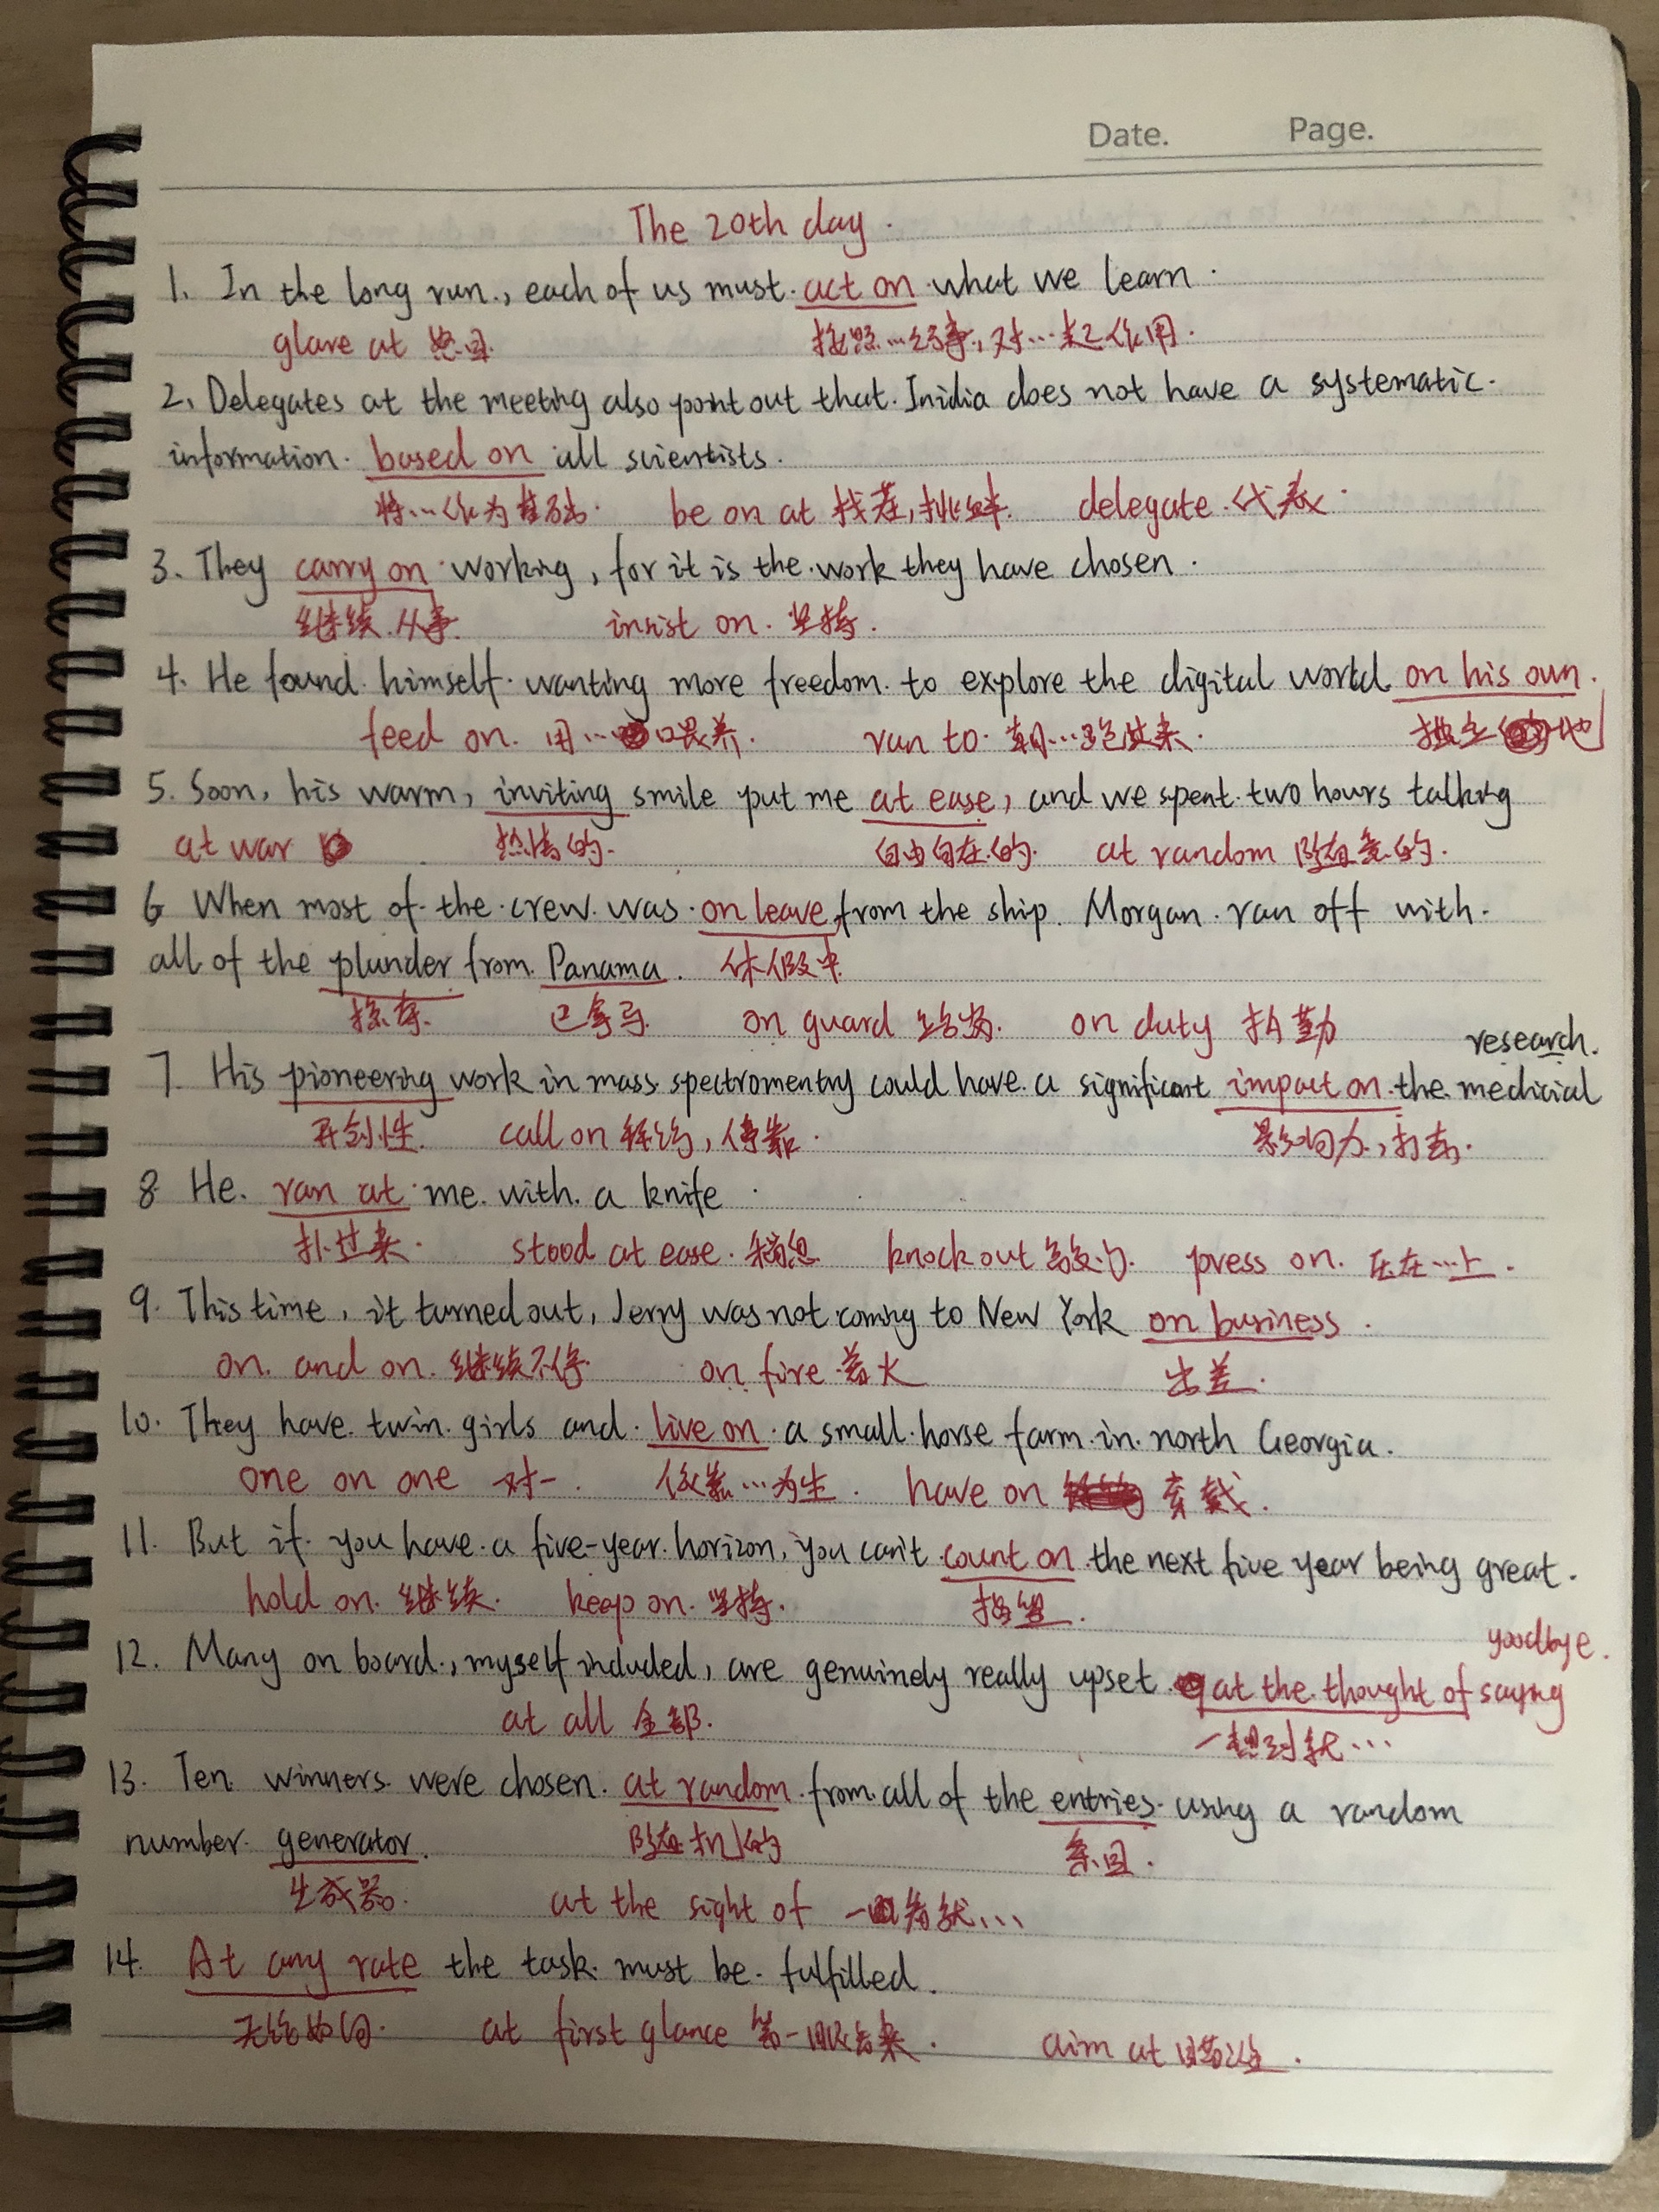 Date. Page.
The 20th day.
1. In the long run, each of us must act on what we learn.
glare at 怒目 按照…行事,对…起作用.
2. Delegates at the meeting also point out that Inidia does not have a systematic
information based on all scientists.
将…作为基础. be on at 找茬,挑衅. delegate 代表.
3. They carry on working, for it is the work they have chosen.
继续.从事. insist on. 坚持.
4. He found himself wanting more freedom to explore the digital world on his own.
feed on. 用… 喂养. run to. 朝…跑过来. 独立 地
5. Soon, his warm, inviting smile put me at ease, and we spent two hours talking
at war 热情的. 自由自在的. at random 随意的.
6 When most of the crew was on leave from the ship. Morgan ran off with
all of the plunder from Panama. 休假中
掠夺. 巴拿马. on guard 站岗. on duty 执勤
research.
7. His pioneering work in mass spectromentry could have a significant impact on the medicial
开创性. call on 影响力,打击.
8 He ran at me with a knife
扑过来. stood at ease. 稍息 knock out 敲门. press on. 压在…上.
9. This time, it turned out, Jerry was not coming to New York on business.
on and on. 继续不停. on fire 着火 出差.
10. They have twin girls and live on a small horse farm in north Georgia.
one on one 一对一. 依靠…为生. have on 穿戴.
11. But if you have a five-year horizon, you can't count on the next five year being great.
hold on. 继续. keep on. 坚持. 指望.
goodbye.
12. Many on board, myself included, are genuinely really upset at the thought of saying
at all 全部. 一想到就…
13. Ten winners were chosen at random from all of the entries using a random
number generator. 随机的 条目.
生成器. at the sight of 一 看就…
14. At any rate the task must be fulfilled.
无论如何. at first glance 第一眼看来. aim at 瞄准.